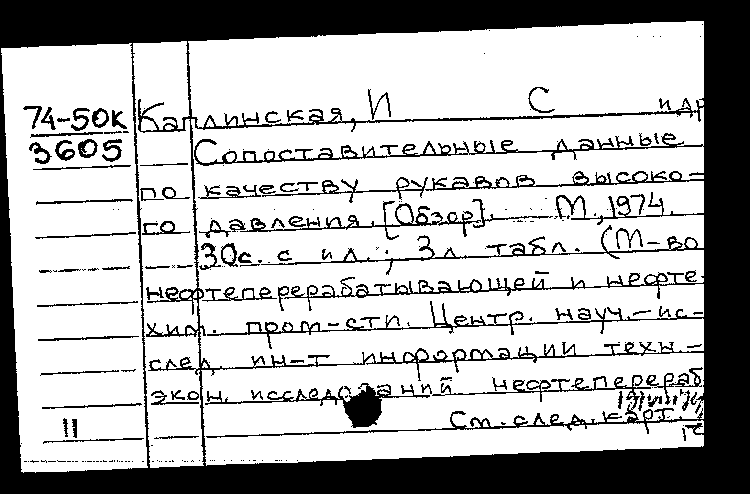 74-50к Каплинская, И С и др
3605 Сопоставительные данные
по качеству рукавов высоко=
го давления. [Обзор]. М., 1974.
30с. с ил.; 3л. табл. (М-во
нефтеперерабатывающей и нефте-
хим. пром-сти. Центр. науч.-ис-
след. ин-т информации техн.-
экон. исследований нефтеперераб
11 См. след. карт.